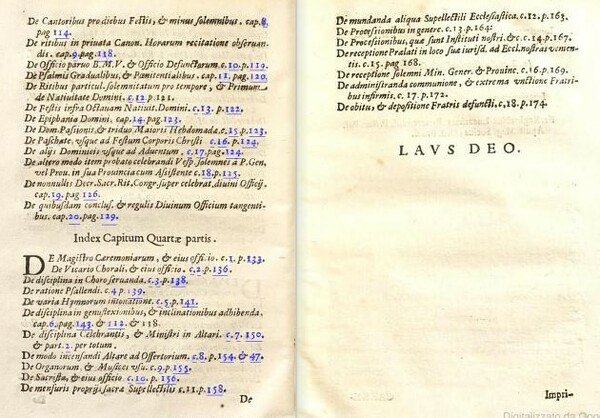 De Cantoribus pro diebus Festis, & minus solemnibus. cap.8.
pag 114.
De ritibus in priuata Canon. Horarum recitatione obseruan-
dis. cap.9.pag.118.
De Officio paruo B.M.V. & Officio Defunctorum. c.10.p.119.
De Psalmis Gradualibus, & Pœnitentialibus. cap.11. pag.120.
De Ritibus particul. solemnitatum pro tempore, & Primum
de Natiuitate Domini. c.12.p.121.
De Festis infra Octauam Natiuit. Domini. c.13. p.122.
De Epiphania Domini. cap.14. pag.123.
De Dom. Passionis, & triduo Maioris Hebdomadæ. c.15.p.123.
De Paschate, vsque ad Festum Corporis Christi c.16. p.124.
De alijs Dominicis vsque ad Aduentum. c.17.pag.124.
De altero modo item probato celebrandi Vesp. solemnes à P. Gen.
vel Prou. in sua Prouincia cum Assistente c.18.p.125.
De nonnullis Decr. Sac. Rit. Congr. super celebrat. diuini Officij.
cap.19. pag 126.
De quibusdam conclus. & regulis Diuinum Officium tangenti-
bus. cap.20.pag.129.
Index Capitum Quartæ partis.
DE Magistro Cæremoniarum, & eius officio. c.1. p.133.
De Vicario Chorali, & eius officio. c.2.p.136.
De disciplina in Choro seruanda. c.3.p.138.
De ratione Psallendi. c.4.p.139.
De varia Hymnorum intonatione. c.5.p.141.
De disciplina in genuflexionibus, & inclinationibus adhibenda.
cap.6.pag.143. & 112. & 138.
De disciplina Celebrantis, & Ministri in Altari. c.7. 150.
& part.2. per totum.
De modo incensandi Altare ad Offertorium. c.8. p.154. & 47.
De Organorum, & Musices vsu. c.9.p.155.
De Sacristæ, & eius officio c.10. p.156.
De mensuris proprijs sacræ Supellectilis c.11.p.158.
De
De mundanda aliqua Supellectili Ecclesiastica. c.12.p.163.
De Processionibus in genere. c.13.p.164.
De Processionibus, quæ sunt Instituti nostri, &c. c.14.p.167.
De receptione Prælati in loco suæ iurisd. ad Eccl. nostras venien-
tis. c.15. pag.168.
De receptione solemni Min. Gener. & Prouinc. c.16.p.169.
De administranda communione, & extrema vnctione Fratri-
bus infirmis. c. 17. p.172.
De obitu, & depositione Fratris defuncti. c.18. p.174.
LAVS DEO.
Impri-
Digitalizzato da Goo